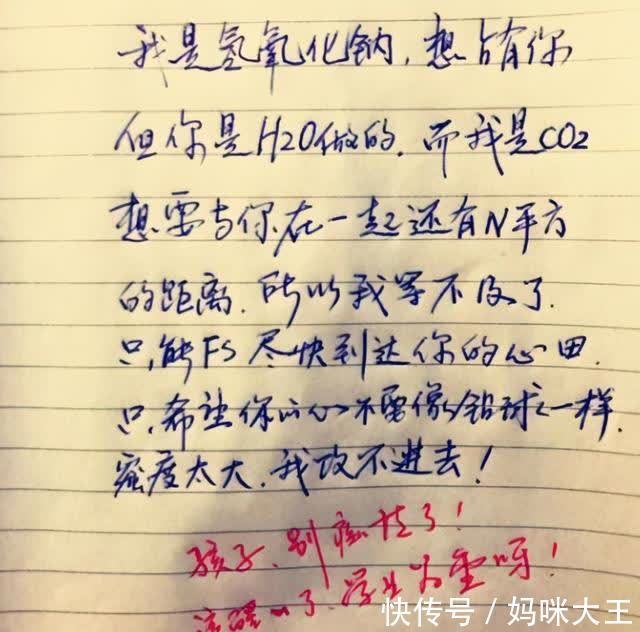 我是氢氧化钠,想占有你
但你是H2O做的.而我是CO2
想要与你在一起还有N平方
的距离.所以我等不及了.
只能FS尽快到达你的心田.
只希望你的心不要像铅球一样.
密度太大.我攻不进去!
孩子,别痴情了!
清醒 了.学业为重呀!
快传号 / 妈咪大王